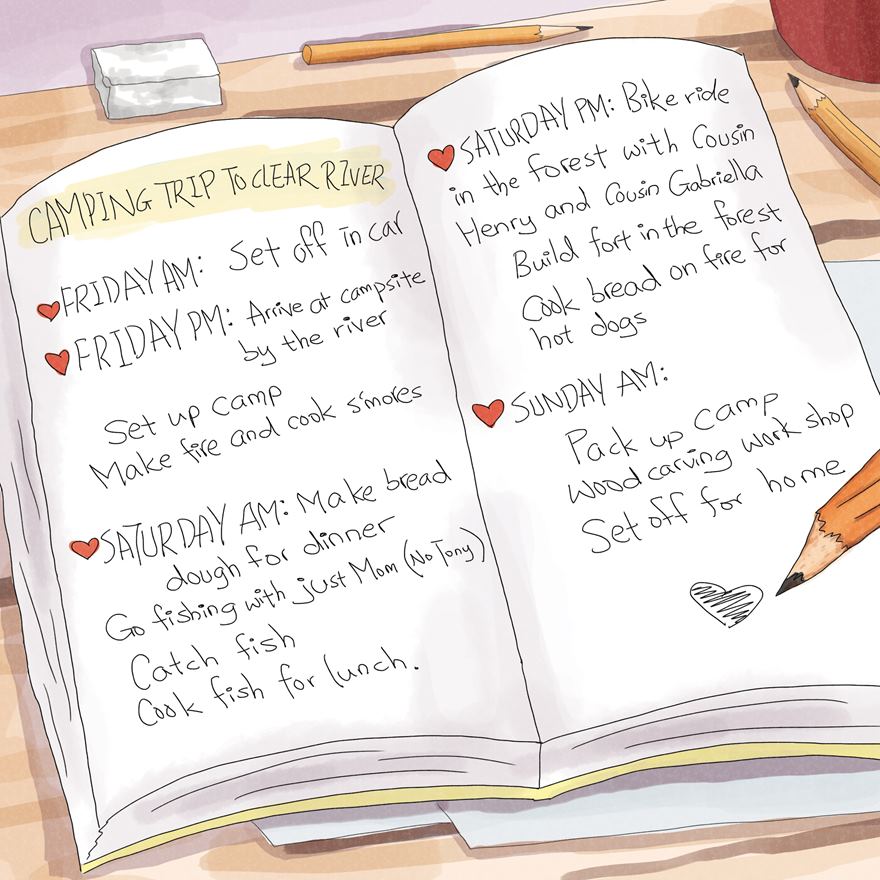 CAMPING TRIP TO CLEAR RIVER
FRIDAY AM: Set off in car
FRIDAY PM: Arrive at campsite
by the river
Set up camp
Make fire and cook s'mores
SATURDAY AM: Make bread
dough for dinner
Go fishing with just Mom (No Tony)
Catch fish
Cook fish for lunch.
SATURDAY PM: Bike ride
in the forest with Cousin
Henry and Cousin Gabriella
Build fort in the forest
Cook bread on fire for
hot dogs
SUNDAY AM:
Pack up camp
Wood carving work shop
Set off for home